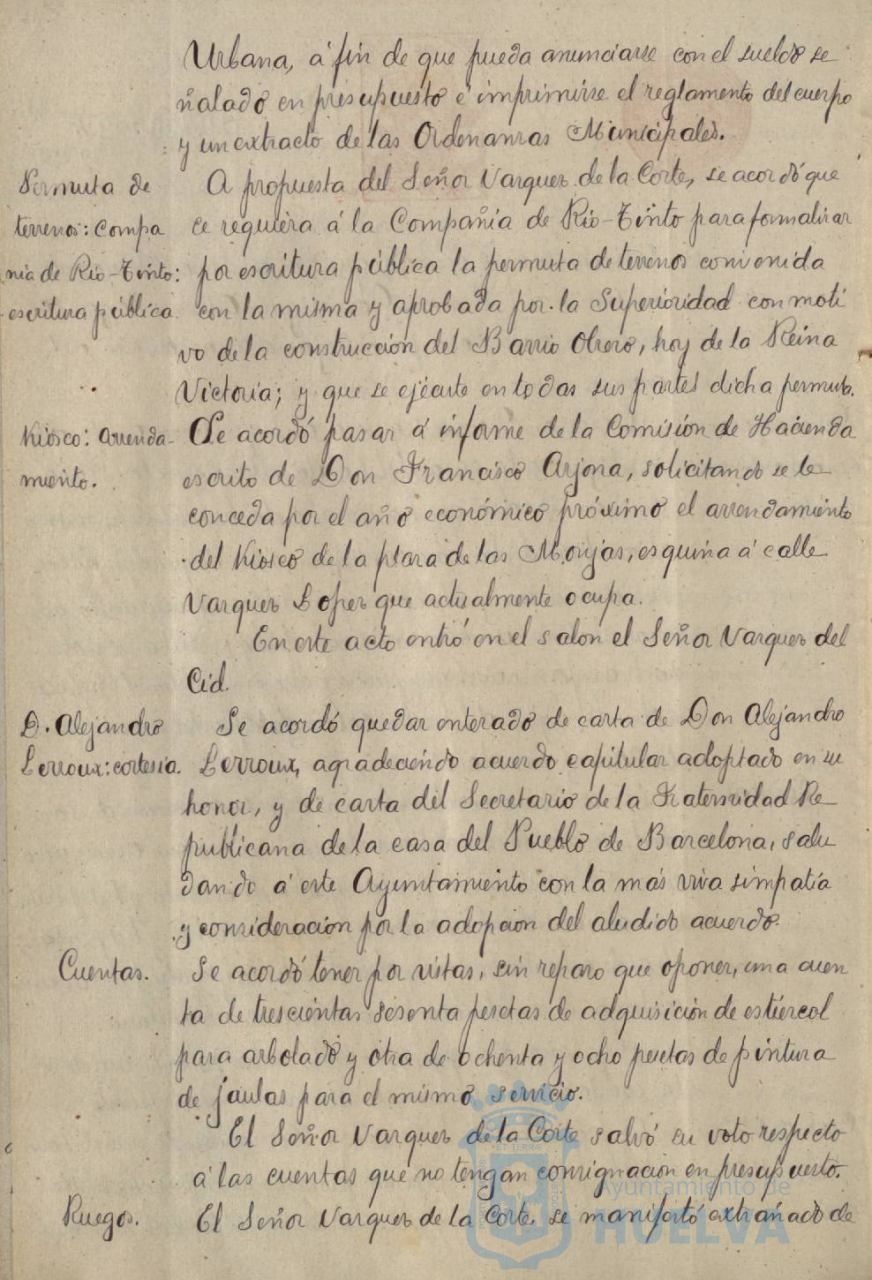 Urbana, á fin de que pueda anunciarse con el sueldo se
ñalado en presupuesto é imprimirse el reglamento del cuerpo
y un extracto de las Ordenanzas Municipales.
Permuta de
terrenos: Compa
ñia de Rio-Tinto:
escritura pública
A propuesta del Señor Vazquez de la Corte, se acordó que
se requiera á la Compañia de Rio-Tinto para formalizar
por escritura pública la permuta de terrenos convenida
con la misma y aprobada por la Superioridad con moti
vo de la construcción del Barrio Obrero, hoy de la Reina
Victoria; y que se ejecute en todas sus partes dicha permuta.
Kiosco: arrenda-
miento.
Se acordó pasar á informe de la Comisión de Hacienda
escrito de Don Francisco Arjona, solicitando se le
conceda por el año económico próximo el arrendamiento
del Kiosco de la plaza de las Monjas, esquina á calle
Vazquez Lopez que actualmente ocupa.
En este acto entró en el salon el Señor Vazquez del
Cid.
D. Alejandro
Lerroux: cortesia.
Se acordó quedar enterado de carta de Don Alejandro
Lerroux, agradeciendo acuerdo capitular adoptado en su
honor, y de carta del Secretario de la Fraternidad Re
publicana de la casa del Pueblo de Barcelona, salu
dando á este Ayuntamiento con la más viva simpatía
y consideracion por la adopcion del aludido acuerdo.
Cuentas.
Se acordó tener por vistas, sin reparo que oponer, una cuen
ta de trescientas sesenta pesetas de adquisición de estiércol
para arbolado y otra de ochenta y ocho pesetas de pintura
de jaulas para el mismo servicio.
El Señor Vazquez de la Corte salvó su voto respecto
á las cuentas que no tengan consignacion en presupuesto.
Ruegos.
El Señor Vazquez de la Corte, se manifestó extrañado de
Ayuntamiento de
HUELVA